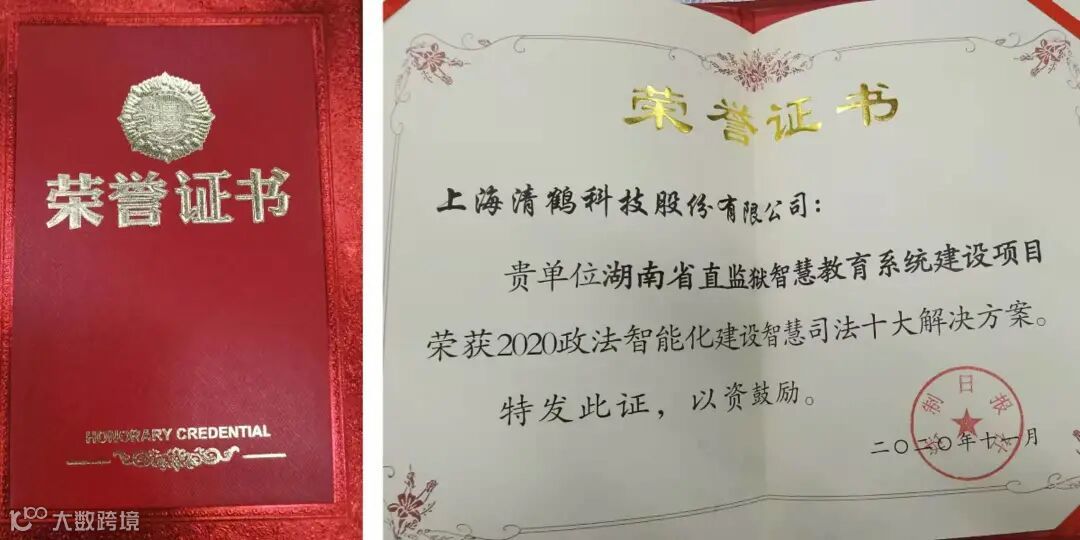 荣誉证书
HONORARY CREDENTIAL
大数跨境
荣誉证书
上海清鹤科技股份有限公司：
贵单位湖南省直监狱智慧教育系统建设项目
荣获2020政法智能化建设智慧司法十大解决方案。
特发此证，以资鼓励。
制日报
二〇二〇年十一月